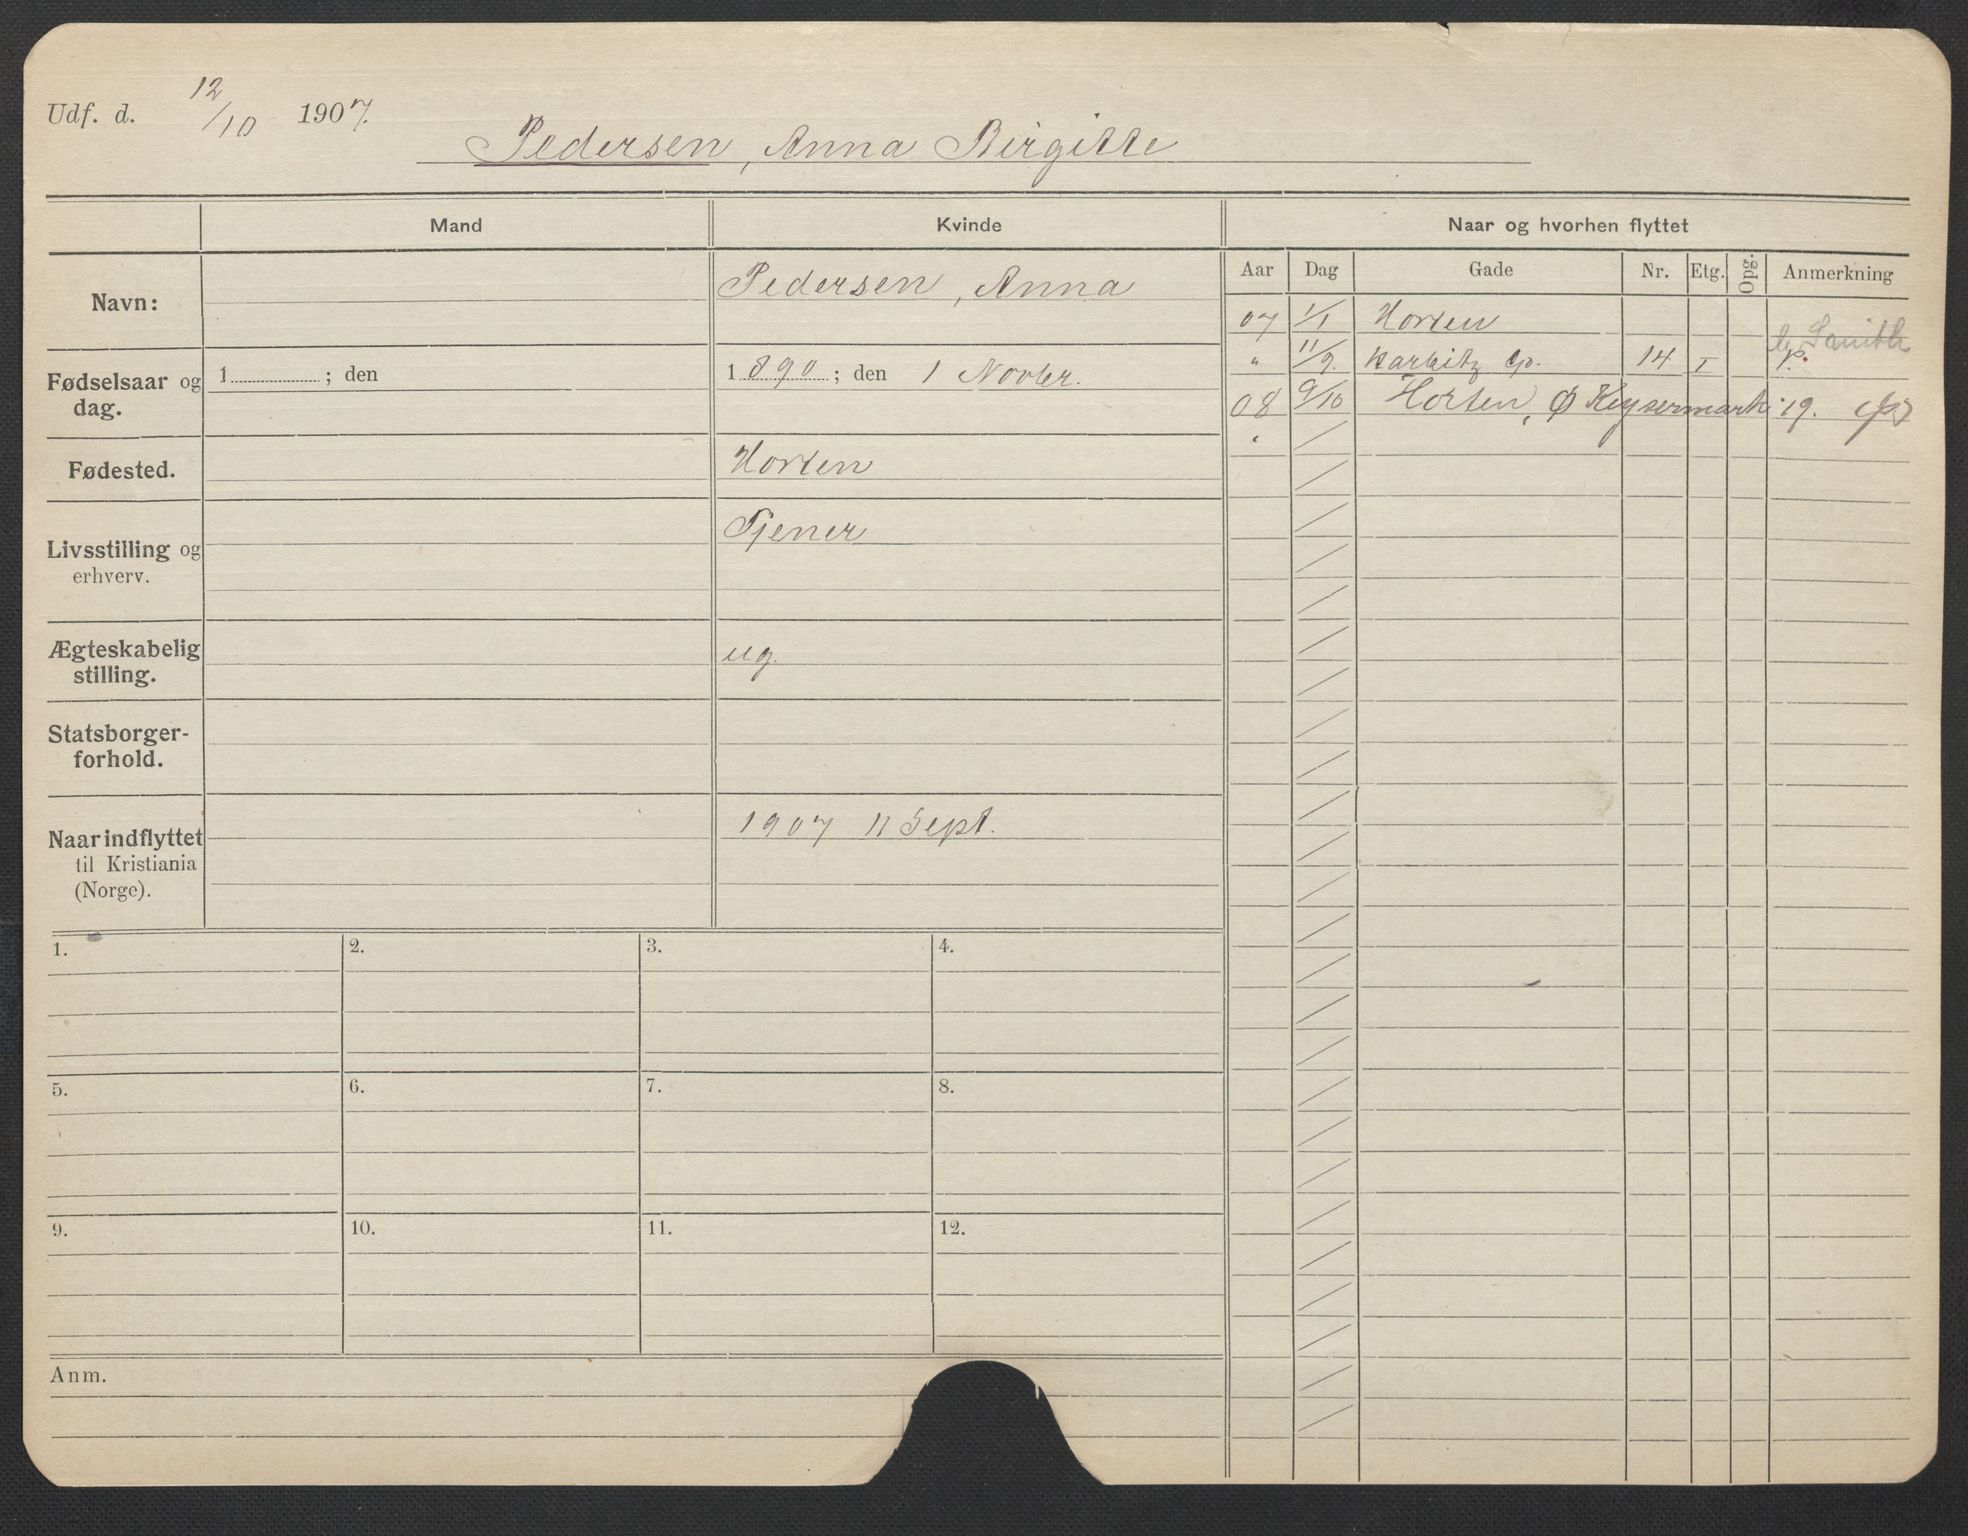 Udf. d. 12/10 1907.
Pedersen, Anna Birgitte
Mand Kvinde Naar og hvorhen flyttet
Aar Dag Gade Nr. Etg. Opg. Anmerkning
Navn: Pedersen, Anna
07 1/1 Horten
Smith
" 11/9. Karbitz Gp. 14 I p.
Fødselsaar og dag. 1 ; den 1890 ; den 1 Novbr.
08 9/10 Horten, Ø Keysermark. 19.
"
Fødested. Horten
Livsstilling og erhverv. Tjener
Ægteskabelig stilling. ug.
Statsborger-
forhold.
Naar indflyttet 1907 11 Sept.
til Kristiania
(Norge).
1. 2. 3. 4.
5. 6. 7. 8.
9. 10. 11. 12.
Anm.